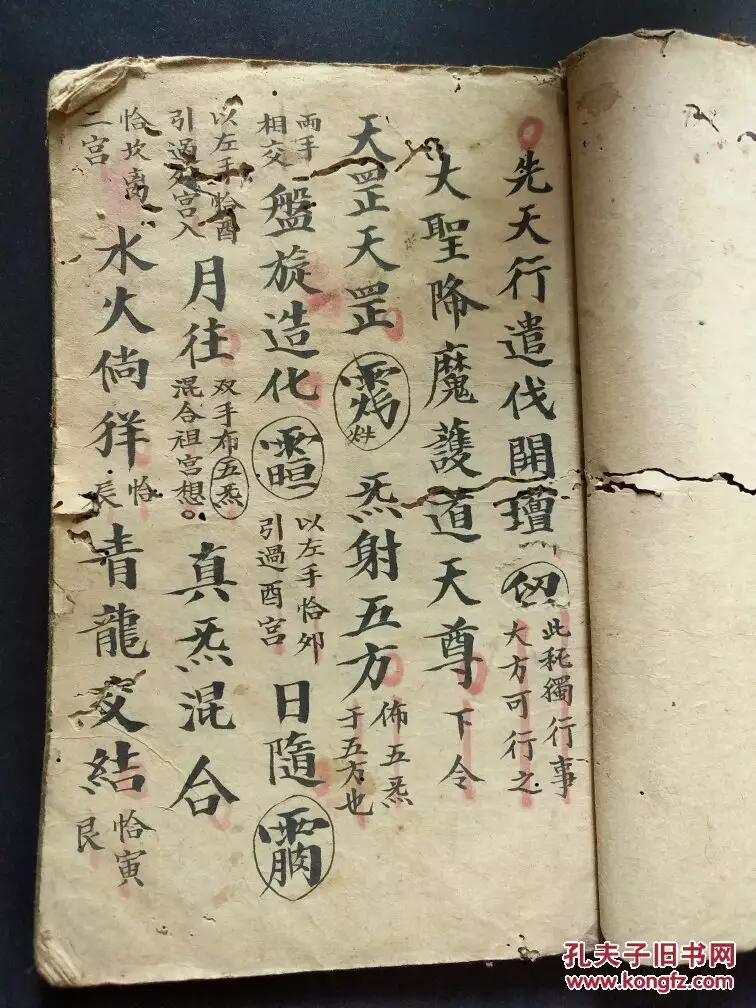 先天行遣伐開壇 此秏獨行事大方可行之
大聖降魔護道天尊 下令
天罡天罡 炁射五方 佈五炁于五方也
両手相交 盤旋造化 以左手恰夘引過酉宮 日隨
以左手恰酉引過夘宮入 月往 双手布五炁混合祖宮想。 真炁混合
恰坎离二宮 水火倘徉 恰辰 青龍交結 恰寅艮
孔夫子旧书网
www.kongfz.com